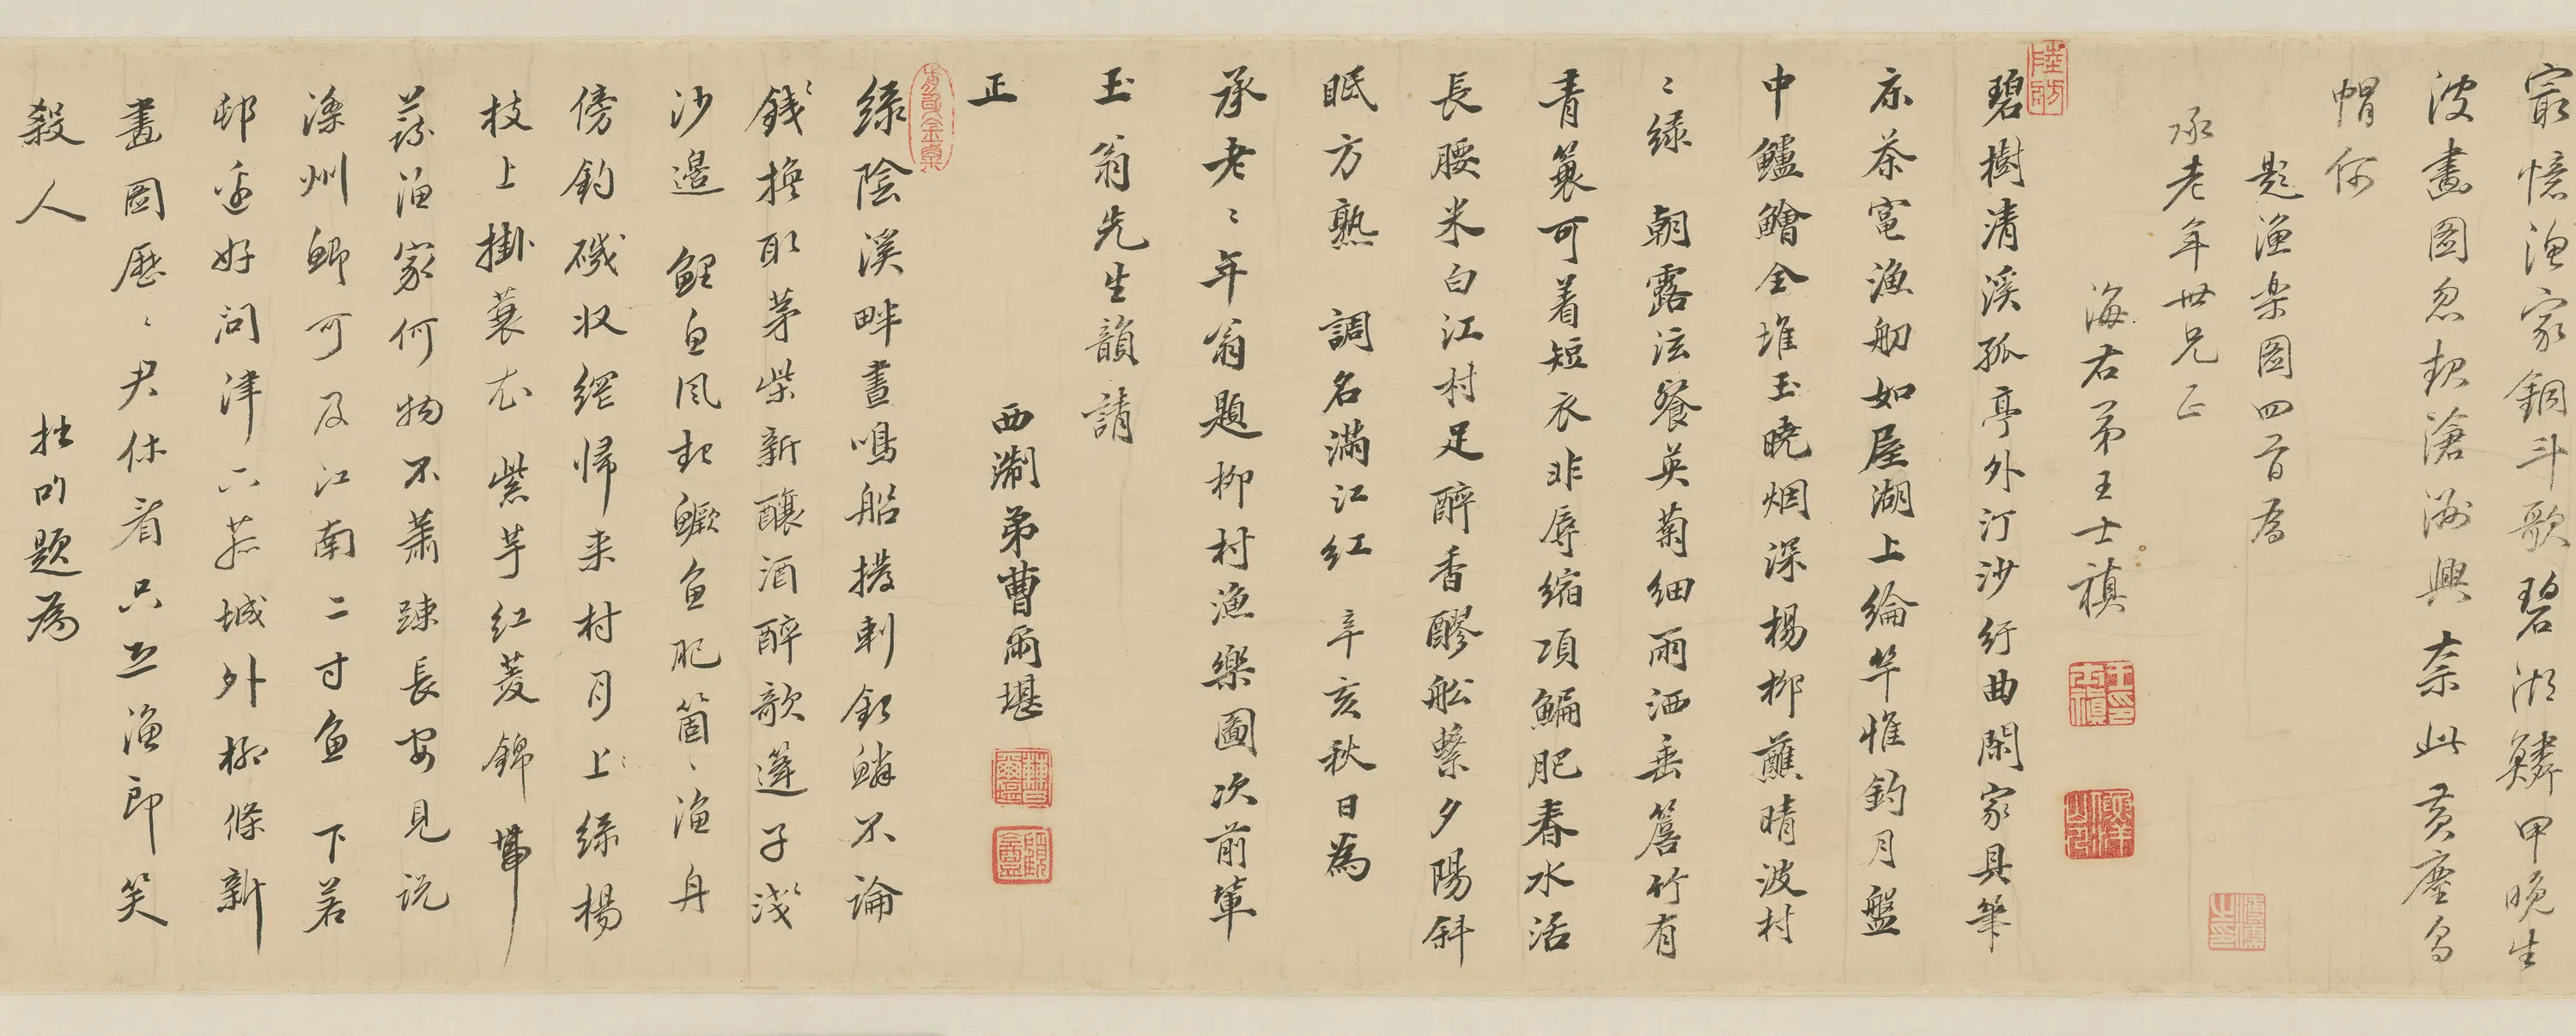 最憶漁家銅斗歌碧湖鱗甲晚生
波畫圖忽動滄洲興奈此黃塵烏
帽何
題漁樂圖四首為
承老年世兄正
海右弟王士禛
碧樹清溪孤亭外汀沙紆曲閑家具筆
床茶竈漁舠如屋湖上綸竿惟釣月盤
中鱸鱠全堆玉曉烟深楊柳蘸晴波村
〻綠 朝露泫餐英菊細雨洒垂簷竹有
青蓑可着短衣非辱縮項鯿肥春水活
長腰米白江村足醉香醪舩繫夕陽斜
眠方熟 調名滿江紅 辛亥秋日為
承老〻年翁題柳村漁樂圖次前輩
玉翁先生韻請
正
西淛弟曹爾堪
綠陰溪畔晝鳴船撥剌銀鱗不論
錢〻換取茅柴新釀酒醉歌蓮子淺〻
沙邊 鯉魚風起鱖魚肥箇〻漁舟
傍釣磯收網歸来村月上綠楊
枝上掛蓑衣 紫芋紅菱錦帶
蓴漁家何物不蕭踈長安見說
滦州鯽可及江南二寸魚 下若
邨邊好問津六 城外柳條新
畫圖歷〻君休看只恐漁郎笑
殺人 拙句題為
陸舫